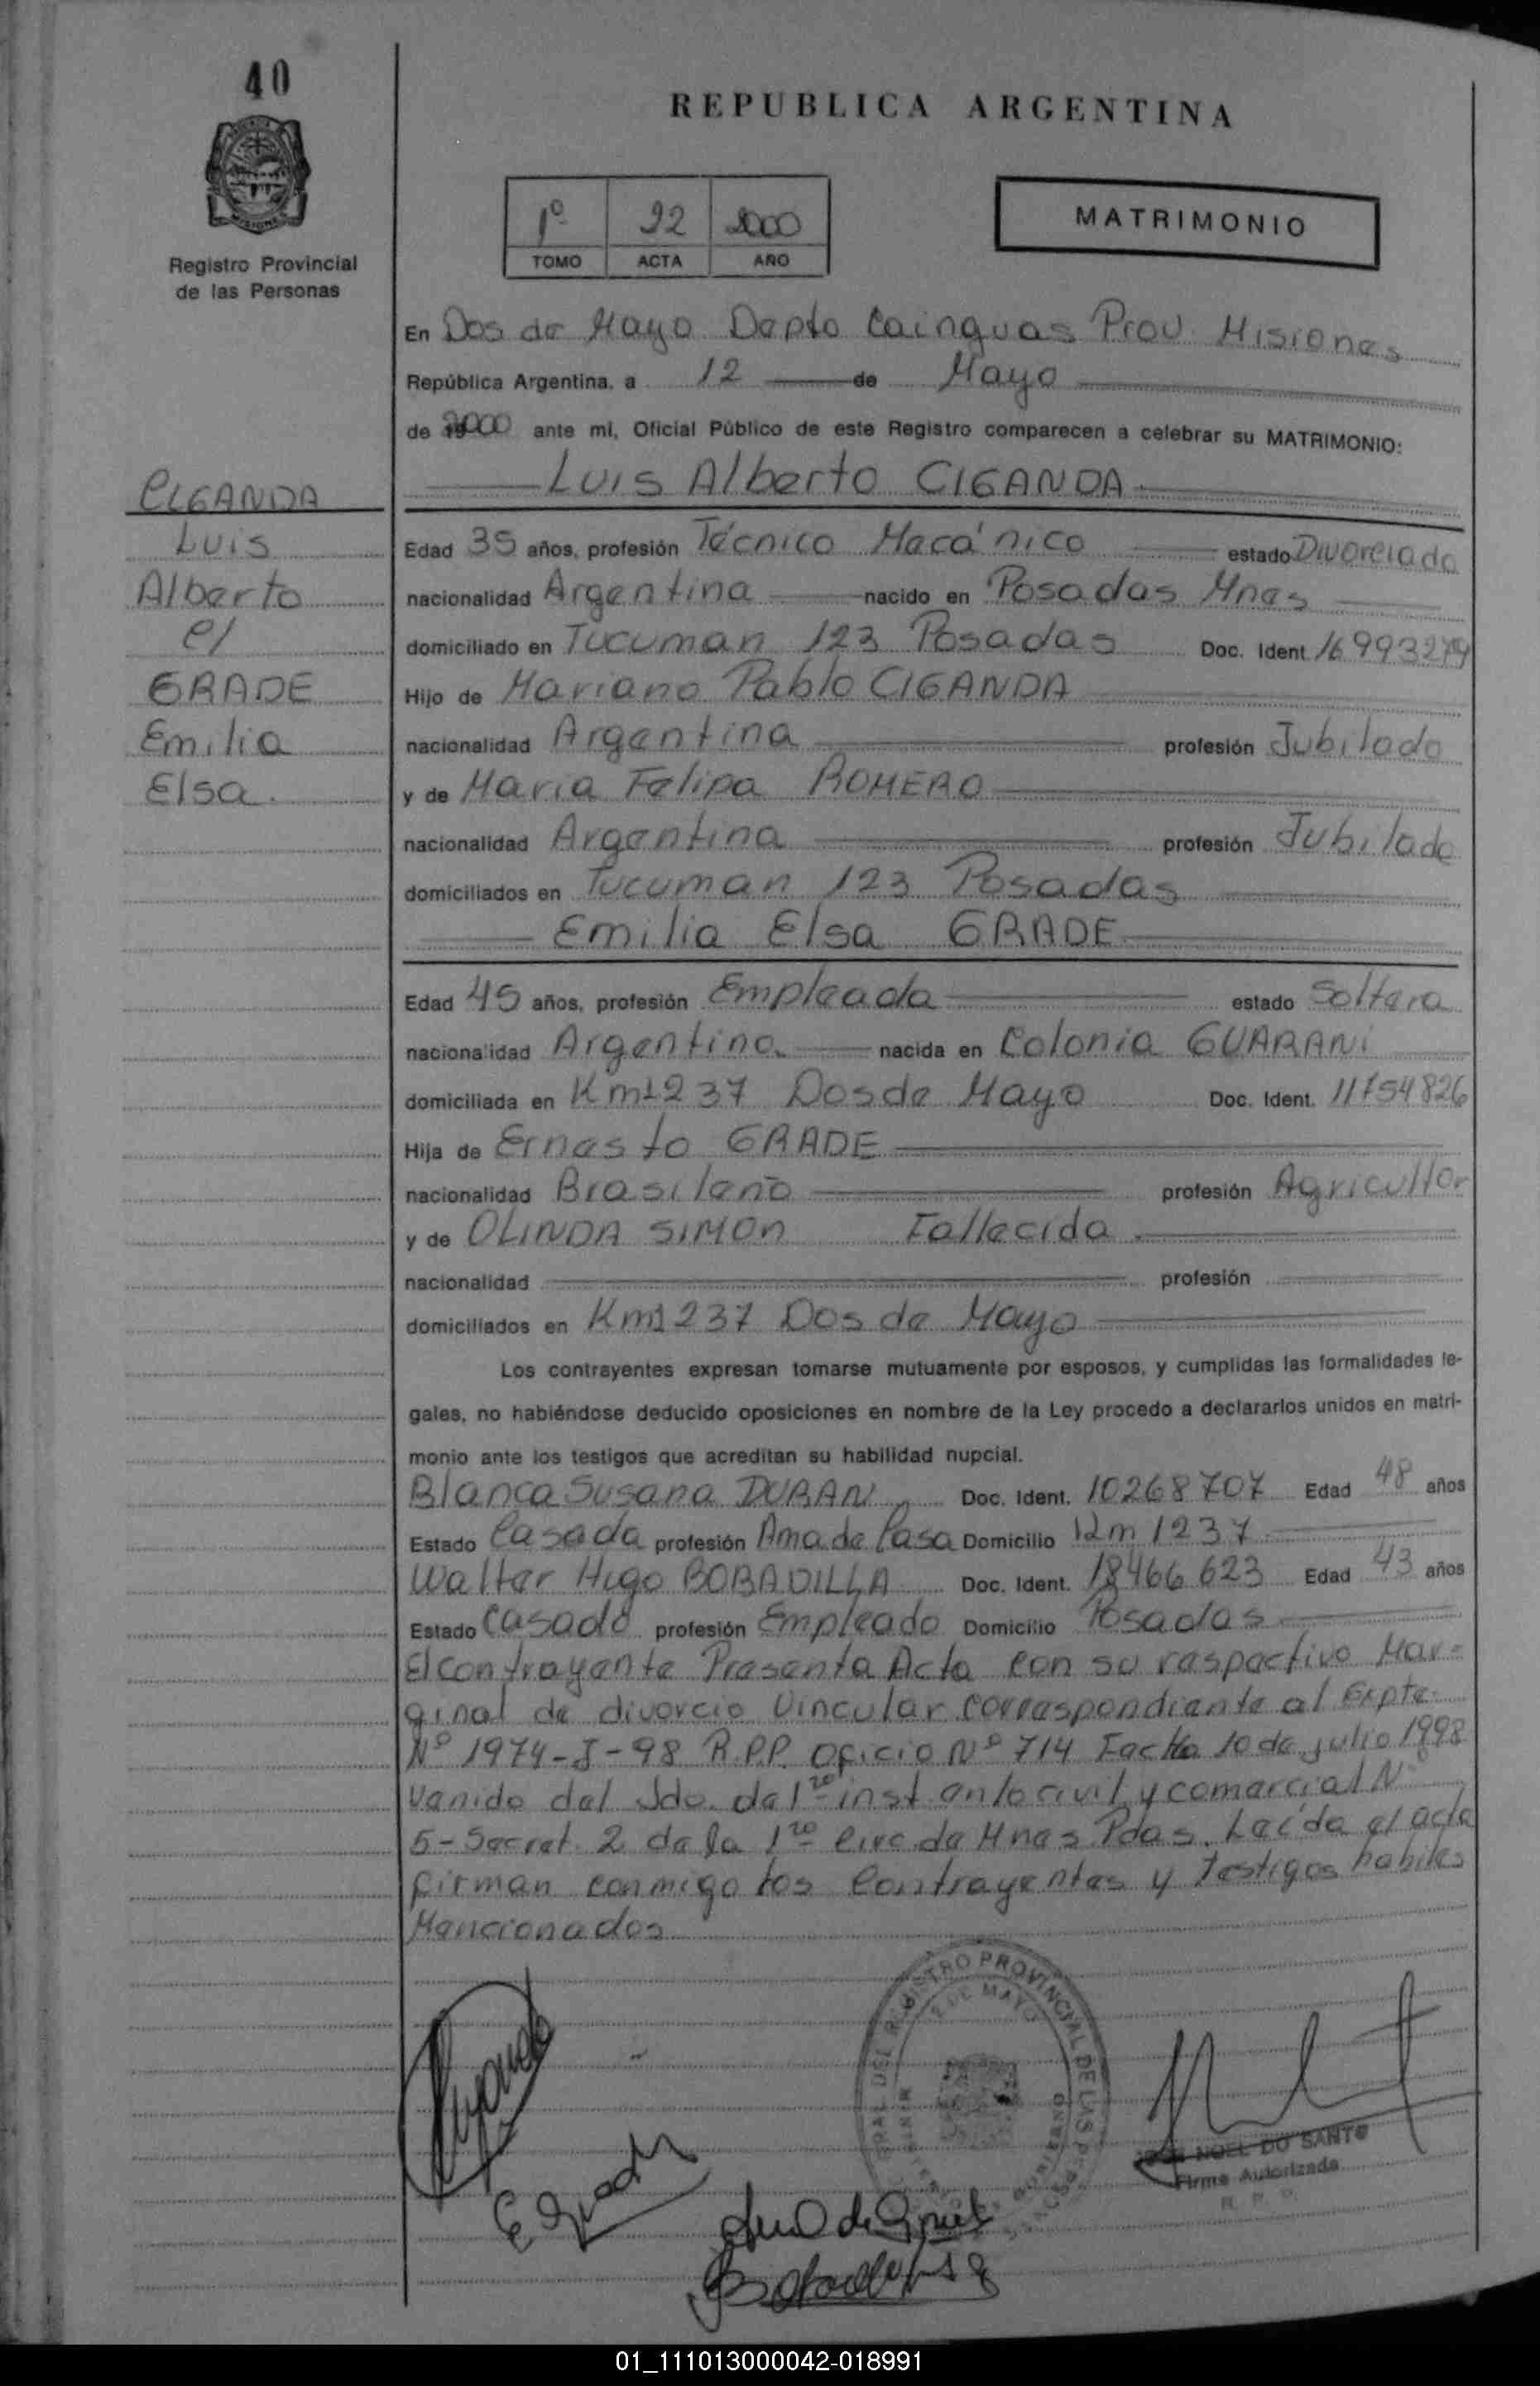 40
REPUBLICA ARGENTINA
1º 22 2000
TOMO ACTA AÑO
MATRIMONIO
Registro Provincial
de las Personas
En Dos de Mayo Depto Cainguas Prov. Misiones
República Argentina, a 12 de Mayo
de 2000 ante mi, Oficial Público de este Registro comparecen a celebrar su MATRIMONIO:
Luis Alberto CIGANDA
CIGANDA
Luis
Alberto
c/
GRADE
Emilia
Elsa.
Edad 35 años, profesión Técnico Mecánico estado Divorciado
nacionalidad Argentina nacido en Posadas Mnes
domiciliado en Tucuman 123 Posadas Doc. Ident. 16993279
Hijo de Mariano Pablo CIGANDA
nacionalidad Argentina profesión Jubilado
y de Maria Felipa ROMERO
nacionalidad Argentina profesión Jubilada
domiciliados en Tucuman 123 Posadas
Emilia Elsa GRADE
Edad 45 años, profesión Empleada estado Soltera
nacionalidad Argentina nacida en Colonia GUARANI
domiciliada en Km 1237 Dos de Mayo Doc. Ident. 11754826
Hija de Ernesto GRADE
nacionalidad Brasileño profesión Agricultor
y de OLINDA SIMON Fallecida
nacionalidad profesión
domiciliados en Km 1237 Dos de Mayo
Los contrayentes expresan tomarse mutuamente por esposos, y cumplidas las formalidades le-
gales, no habiéndose deducido oposiciones en nombre de la Ley procedo a declararlos unidos en matri-
monio ante los testigos que acreditan su habilidad nupcial.
Blanca Susana DURAN Doc. Ident. 10268707 Edad 48 años
Estado Casada profesión Ama de Casa Domicilio Km 1237
Walter Hugo BOBADILLA Doc. Ident. 18466623 Edad 43 años
Estado Casado profesión Empleado Domicilio Posadas
El contrayente Presenta Acta con su respectivo Mar-
ginal de divorcio Vincular correspondiente al Expte
Nº 1974-J-98 R.P.P. oficio Nº 714 Fecha 10 de julio 1998
Venido del Jdo. de 1ra inst en lo civil y comercial Nº
5 - Secret. 2 de la 1ra Circ. de Mnes Pdas. Leída el acta
firman conmigo los Contrayentes y Testigos habiles
Mencionados
REGISTRO PROVINCIAL DE LAS PERSONAS
2 DE MAYO
NOEL DO SANTO
Firma Autorizada
E Grade
01_111013000042-018991